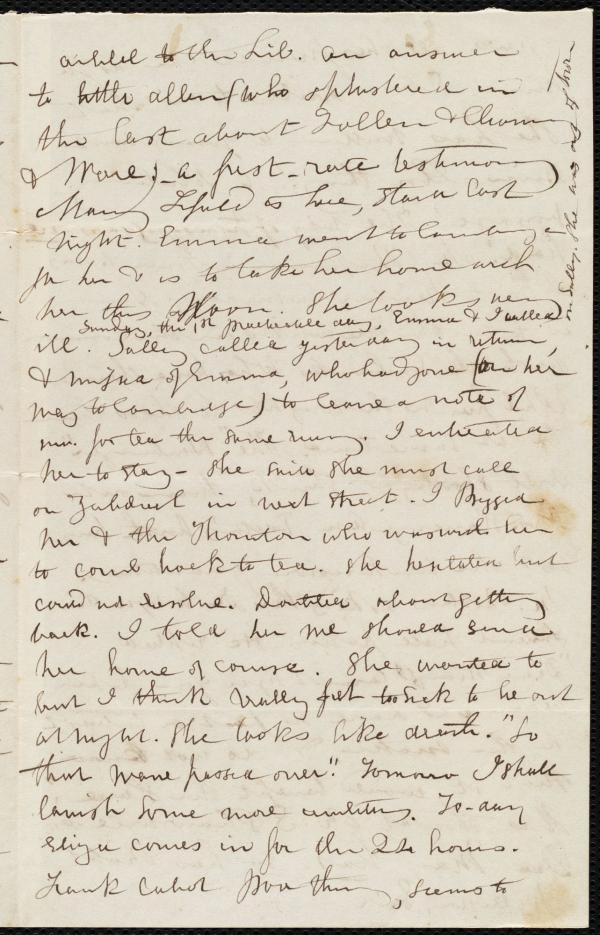 to the Lib. an answer
to little allen (who in
the last about Follen &
& Ware; - a first-rate testimony
Mary is here, since last
night. Emma went to Cambridge
for her & is to take her home with
her this afternoon. She looks very
ill. Sally called yesterday in return,
Sunday, the 1st practicable day, Emma & I called
on Sally. She was out of town
& missed of Emma, who had gone (on her
way to Cambridge) to leave a note of
inv. for tea the same evening. I entreated
her to stay - she said she must call
on in next street. I begged
her & the Thornton who was with her
to come back to tea. She hesitated but
could not resolve. Doubted about getting
back. I told her we should send
her home of course. She wanted to
but I think really felt too sick to be out
at night. She looks like death. "So
that wave passed over". Tomorrow I shall
lavish some more civilities. To-day
Eliza comes in for the 24 hours.
Frank Cabot poor thing, seems to